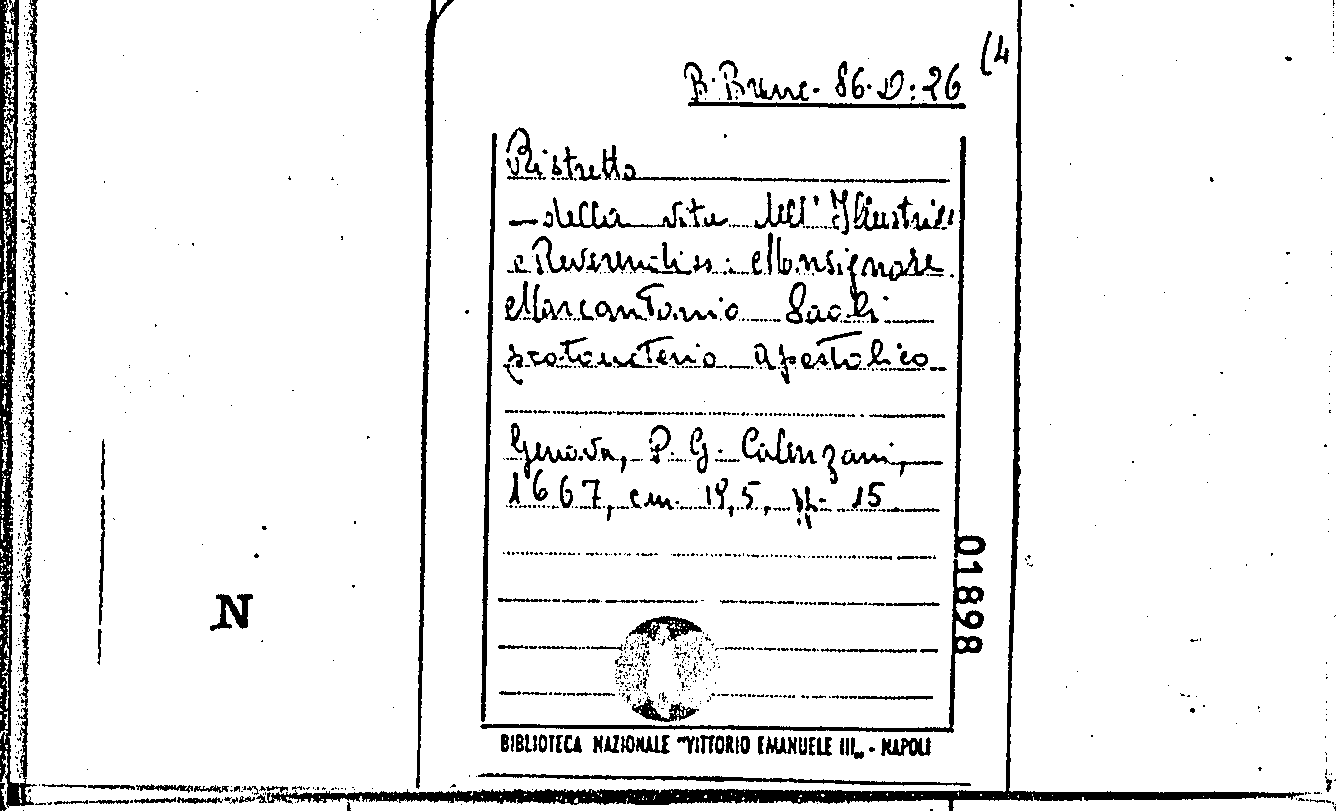 B. Branc. 86. D. 26 (4
Ristretto
della vita dell'Illustriss.
e Reverendiss. Monsignore
Marcantonio Saoli
protonotario Apostolico
Genova, P. G. Calenzani,
1667, cm. 19,5, pp. 15
01898
N
BIBLIOTECA NAZIONALE "VITTORIO EMANUELE III„ - NAPOLI